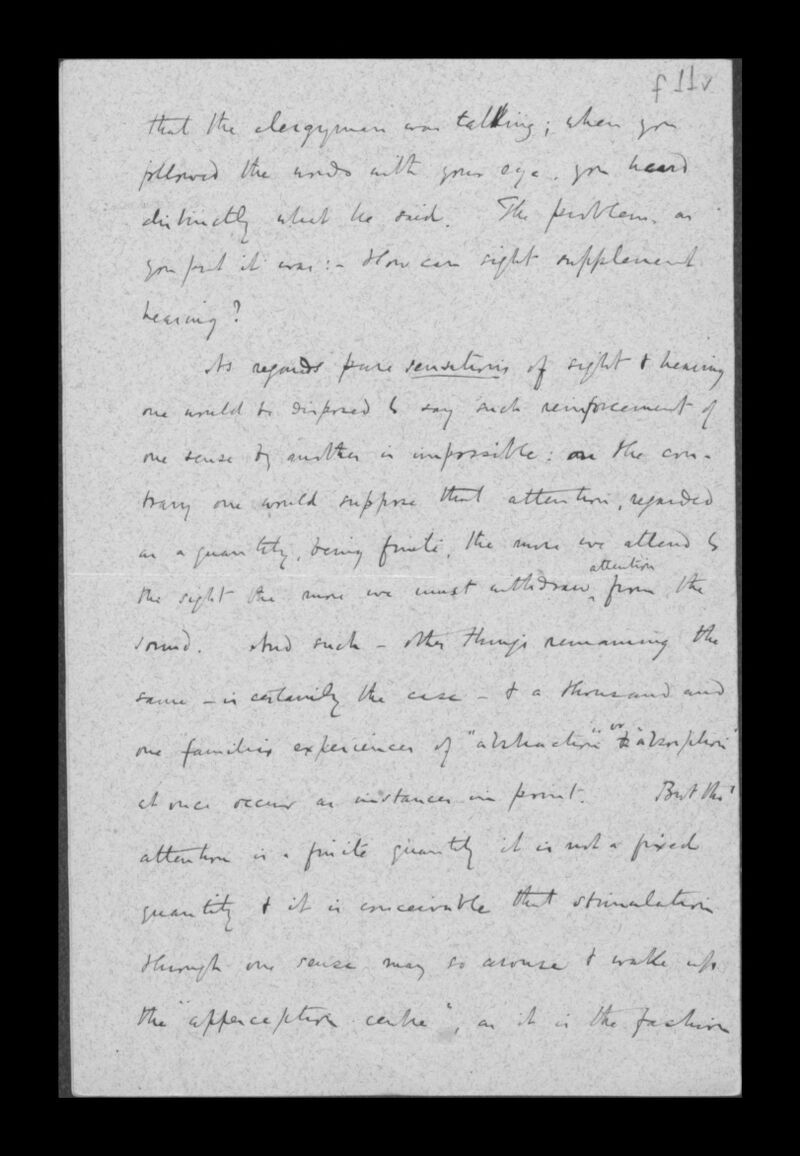 f 11v
that the clergyman was talking; when you
followed the words with your eye, you heard
distinctly what he said. The problem, as
you put it was:- How can sight supplement
hearing?
As regards pure sensations of sight & hearing
one would be disposed to say such reinforcement of
one sense by another is impossible: on the con-
trary one would suppose that attention, regarded
as a quantity, being finite, the more we attend to
the sight the more we must withdraw attention from the
sound. And such - other things remaining the
same - is certainly the case - & a thousand and
one familiar experiences of "abstraction" or "absorption"
at once occur as instances in point. But tho'
attention is a finite quantity it is not a fixed
quantity & it is conceivable that stimulation
through one sense may so arouse & wake up
the "apperception centre", as it is the fashion